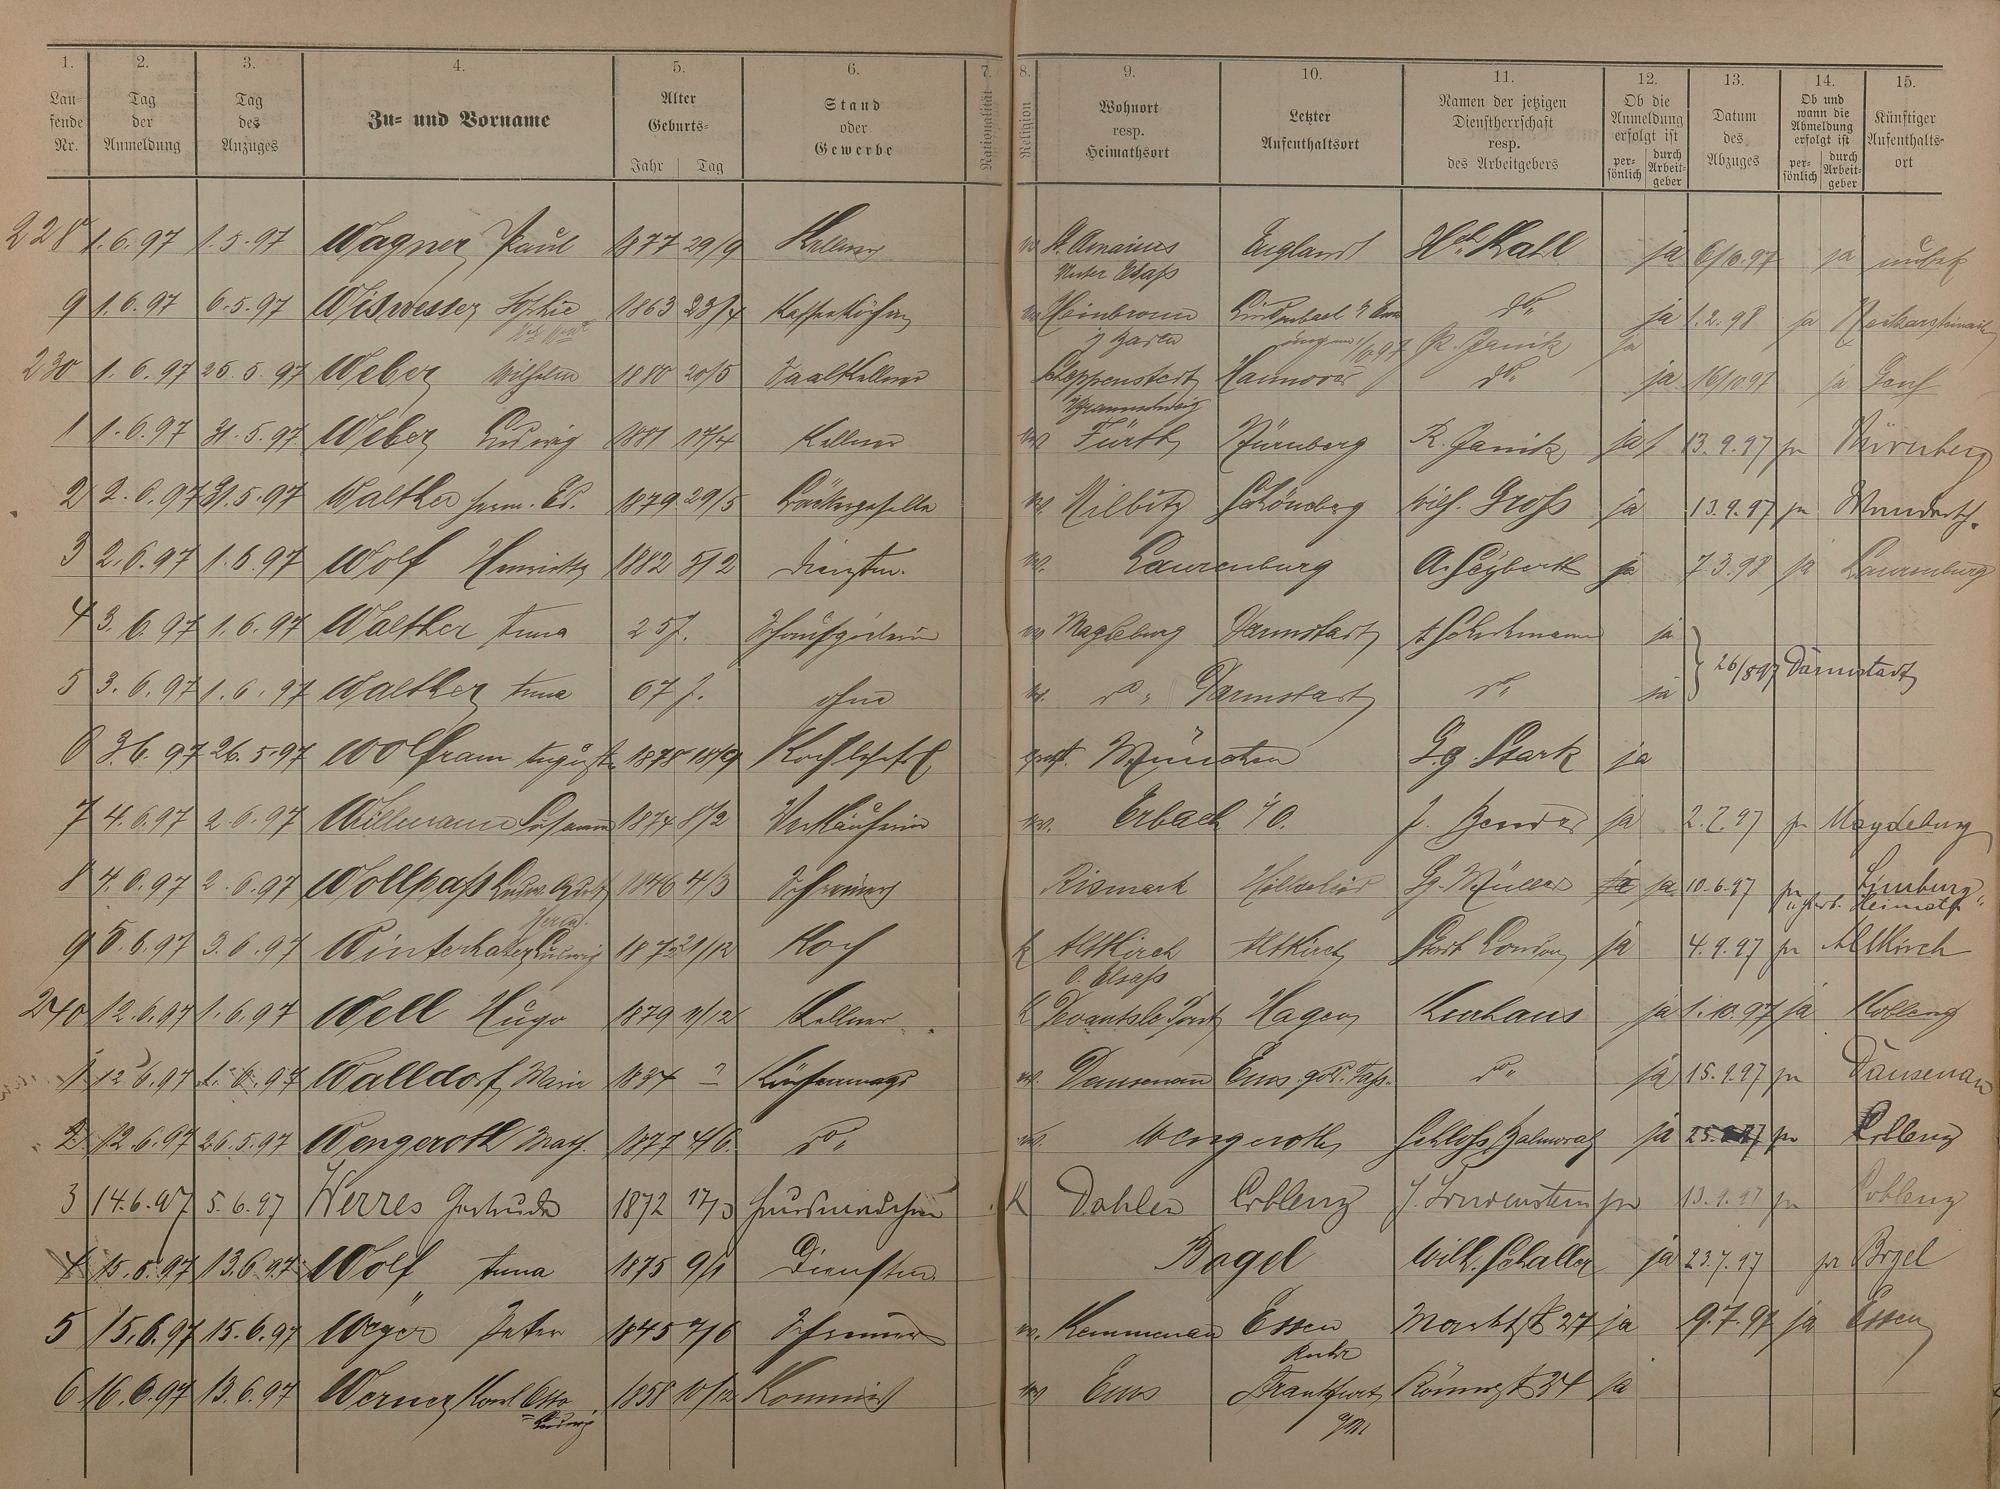 1. 2. 3. 4. 5. 6. 7. 8. 9. 10. 11. 12. 13. 14. 15.
Lau-
fende
Nr.
Tag
der
Anmeldung
Tag
des
Anzuges
Zu- und Vorname
Alter
Geburts-
Jahr Tag
Stand
oder
Gewerbe
Nationalität
Religion
Wohnort
resp.
Heimathsort
Letzter
Aufenthaltsort
Namen der jetzigen
Dienstherrschaft
resp.
des Arbeitgebers
Ob die
Anmeldung
erfolgt ist
per-
sönlich
durch
Arbeit-
geber
Datum
des
Abzuges
Ob und
wann die
Abmeldung
erfolgt ist
per-
sönlich
durch
Arbeit-
geber
Künftiger
Aufenthalts-
ort
228 1.6.97 1.5.97 Wagner Paul 1877 29/9 Kellner St. Amarines England Htl. Kahl ja 6/10.97 ja unbek
Unter Elsaß
9 1.6.97 6.5.97 Wiswesser Sophie 1863 23/4 Kaffeeköchin Heinbronn do. ja 1.2.98 ja
R. Janik ja
230 1.6.97 25.5.97 Weber Wilhelm 1880 20/5 Saalkellner Scheppenstedt Hannover do. ja 16/10 97 ja Genf
Braunschweig
1 1.6.97 31.5.97 Weber Ludwig 1881 17/4 Kellner ev Fürth Nürnberg R. Janik ja 13.9.97 ja Nürnberg
2 2.6.97 31.5.97 Walther Herm. Ed. 1879 29/5 Bäckergeselle ev. Milbitz Schöneberg Wilh. Groß ja 13.9.97 ja Wandersch.
3 2.6.97 1.6.97 Wolf Henriette 1882 5/2 Dienstm. ev. Laurenburg A. Seyberth ja 7.3.98 ja Laurenburg
4 3.6.97 1.6.97 Walther Anna 25 J. ev Magdeburg Darmstadt ja
26/8 97 Darmstadt
5 3.6.97 1.6.97 Walther Anna 67 J. ohne ev. do. Darmstadt do. ja
6 3.6.97 26.5.97 Wolfram August 1878 18/9 Kochlehrl. prot. München Gg. Stark ja
7 4.6.97 2.6.97 Willmann Susanna 1874 8/2 Verkäuferin ev. Erbach i/O. J. Bender ja 2.7.97 ja Magdeburg
8 4.6.97 2.6.97 Wollpaß Ludw. Rudolf 1846 4/3 Schreiner Bismark Gg. Müller ja ja 10.6.97 ja Limburg
Heimath
9 5.6.97 3.6.97 Winterhalter Ludwig 1872 21/12 Koch k Altkirch Altkirch Stadt London ja 4.9.97 ja Altkirch
O. Elsaß
240 12.6.97 1.6.97 Well Hugo 1879 11/12 Kellner k Hagen Kurhaus ja 1.10.97 ja Koblenz
1 12.6.97 1.6.97 Walldorf Marie 1834 ? Küchenmagd ev. Dausenau Ems gold. Faß. do. ja 15.9.97 ja Dausenau
2 12.6.97 26.5.97 Wengeroth Math. 1877 4/6. do. ev. Wengeroth Schloß Balmoral ja ja Coblenz
3 14.6.97 5.6.97 Werres Gertrude 1872 17/3 Hausmädchen K Dahlen Coblenz J. Löwenstein ja 13.9.97 ja Coblenz
4 15.6.97 13.6.97 Wolf Anna 1875 9/1 Dienstm. Bogel Wilh. Schaller ja 23.7.97 ja Bogel
5 15.6.97 15.6.97 Weyer Peter 1845 7/6 Schreiner ev. Kemmenau Essen Marktst 27 ja 9.7.97 ja Essen
Ruhr
6 16.6.97 13.6.97 Werner Karl Otto 1858 10/12 Kommis ev Ems Frankfurt Römerst 34 ja
Ludwig
a/M